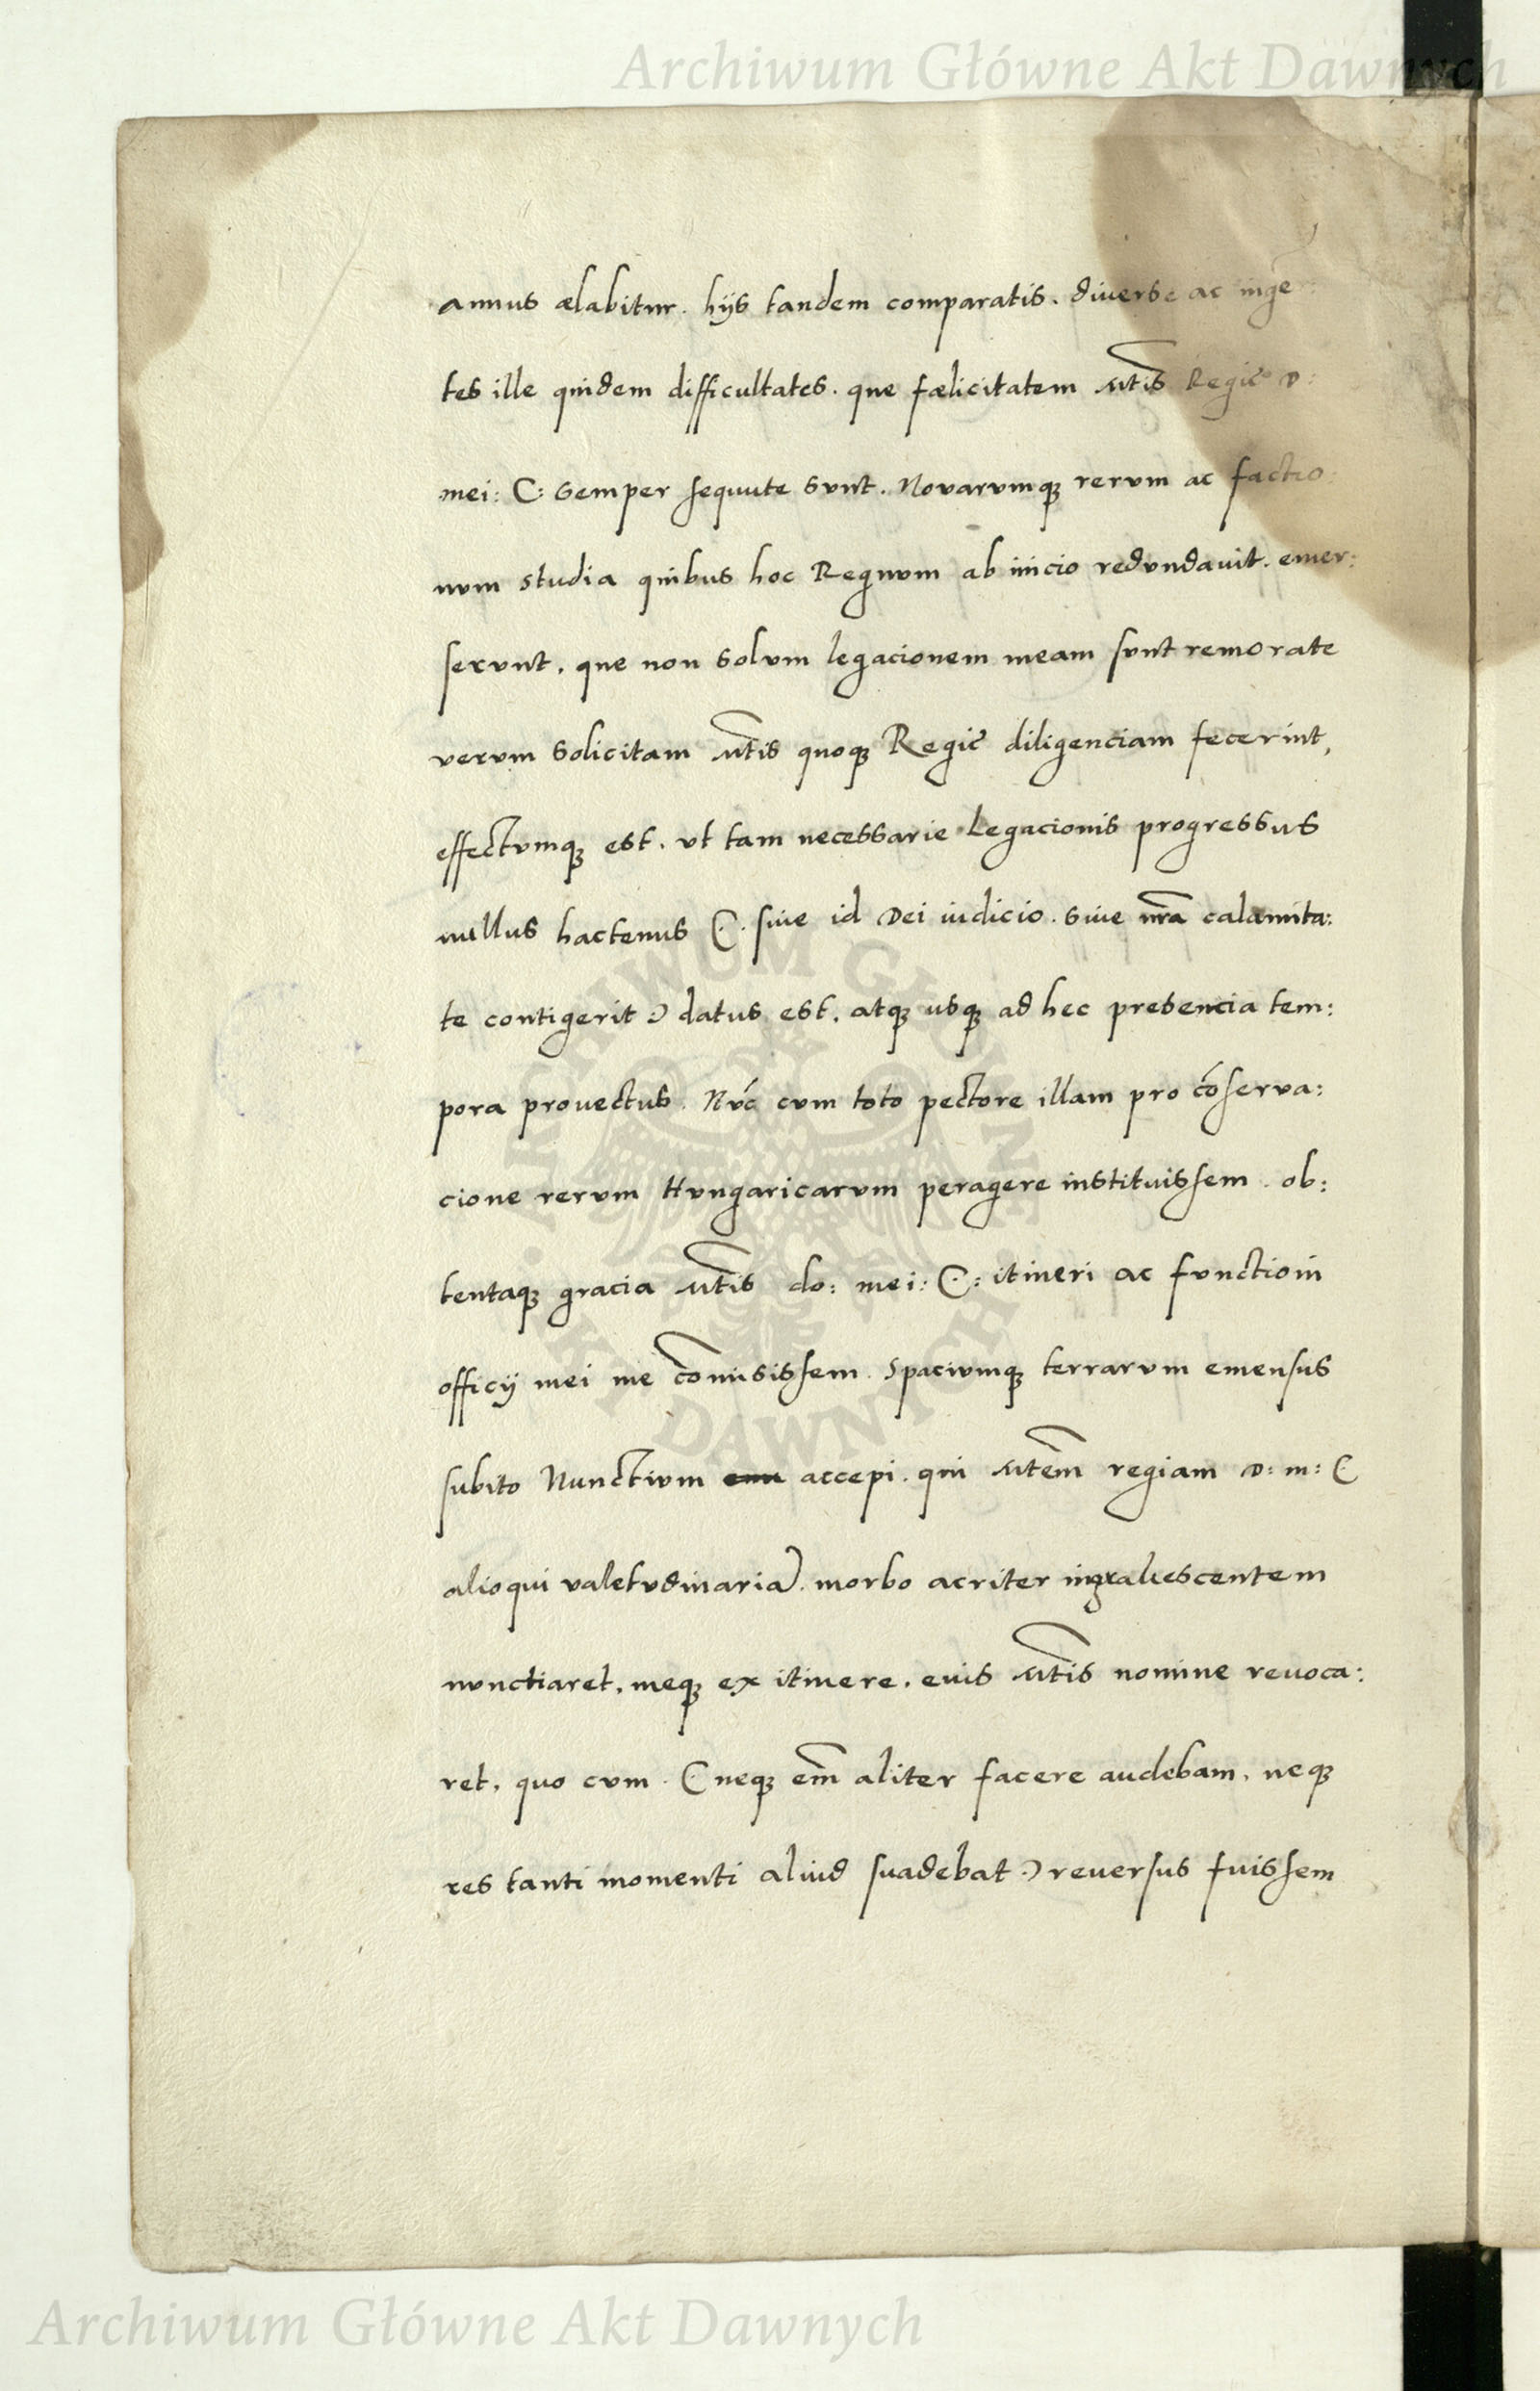 Archiwum Główne Akt Dawnych
annus ælabitur. hijs tandem comparatis. diverse ac ingē
tes ille quidem difficultates. que fœlicitatem Mtis Regie D:
mei: C: semper sequute sunt. Novarumq3 rerum ac factio
num studia quibus hoc Regnum ab inicio redundavit. emer:
serunt. que non solum legacionem meam sunt remorate
verum solicitam Mtis quoq3 Regie diligenciam fecerint,
effectumq3 est. ut tam necessarie Legacionis progressus
nullus hactenus (. siue id Dei iudicio. siue nra calamita:
te contigerit ) datus est. atq3 usq3 ad hec presencia tem:
pora provectus. Nūc cum toto pectore illam pro cōserva:
cione rerum Hungaricarum peragere instituissem. ob:
tentaq3 gracia Mtis do: mei: C: itineri ac functioni
officij mei me comisissem. Spaciumq3 terrarum emensus
subito Nunctium accepi. qui Mtem regiam D: m: C
alioqui valetudinaria). morbo acriter ingravescentem
nunctiaret. meq3 ex itinere. euis Mtis nomine revoca:
ret. quo cum. ( neq3 em aliter facere audebam. neq3
res tanti momenti aliud suadebat .) reversus fuissem
ARCHIWUM GŁÓWNE AKT DAWNYCH
Archiwum Główne Akt Dawnych